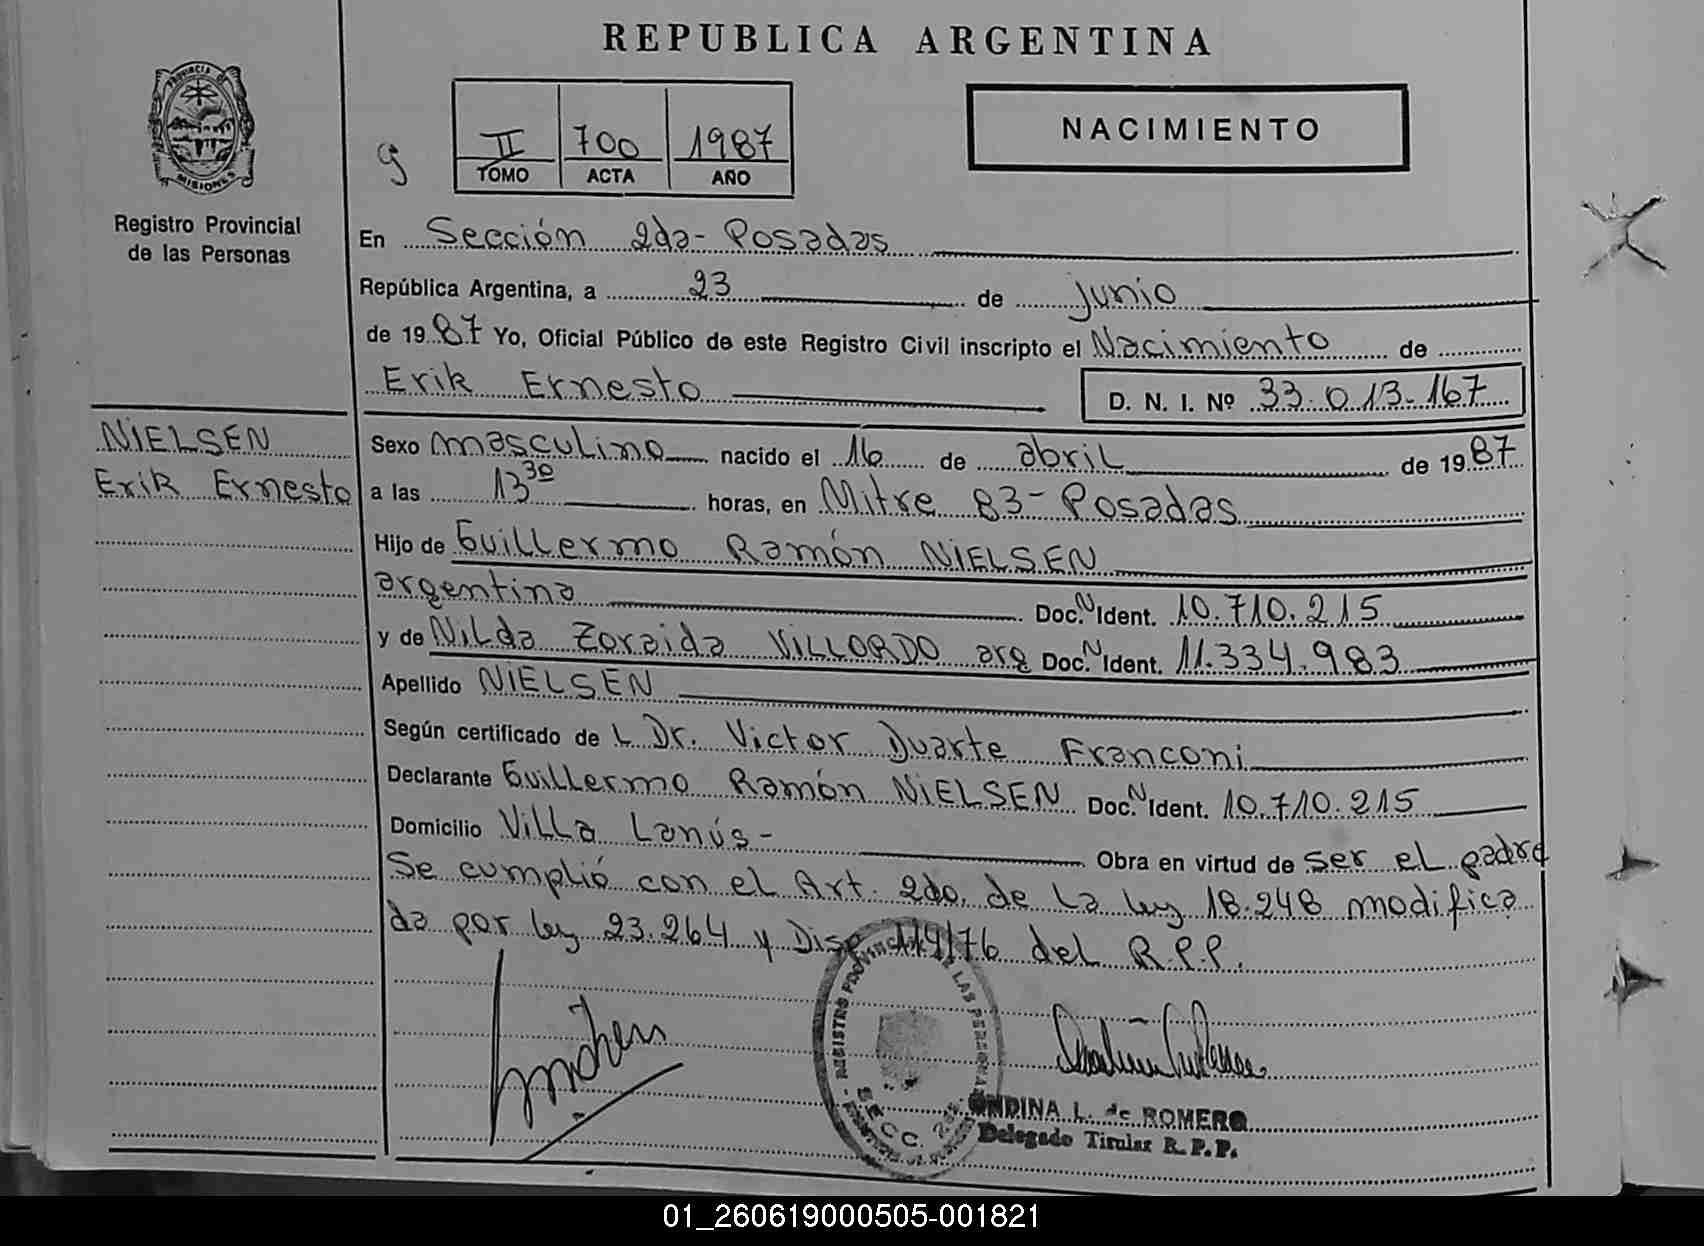 REPUBLICA ARGENTINA
PROVINCIA DE
MISIONES
Registro Provincial
de las Personas
g
II 700 1987
TOMO ACTA AÑO
NACIMIENTO
En Sección 2da- Posadas
República Argentina, a 23 de junio
de 1987 Yo, Oficial Público de este Registro Civil inscripto el Nacimiento de
Erik Ernesto D. N. I. Nº 33.013.167
NIELSEN
Erik Ernesto
Sexo masculino nacido el 16 de abril de 1987
a las 13 30 horas, en Mitre 83- Posadas
Hijo de Guillermo Ramón NIELSEN
argentino Doc. N Ident. 10.710.215
y de Nilda Zoraida VILLORDO arg Doc. N Ident. 11.334.983
Apellido NIELSEN
Según certificado de L Dr. Victor Duarte Franconi
Declarante Guillermo Ramón NIELSEN Doc. N Ident. 10.710.215
Domicilio Villa Lanús- Obra en virtud de ser el padre
Se cumplió con el Art. 2do. de La ley 18.248 modifica
da por ley 23.264 y Disp. 114/76 del R.P.P.
REGISTRO PROVINCIAL DE LAS PERSONAS
SECC. 2da
ONDINA L. de ROMERO
Delegado Titular R.P.P.
01_260619000505-001821